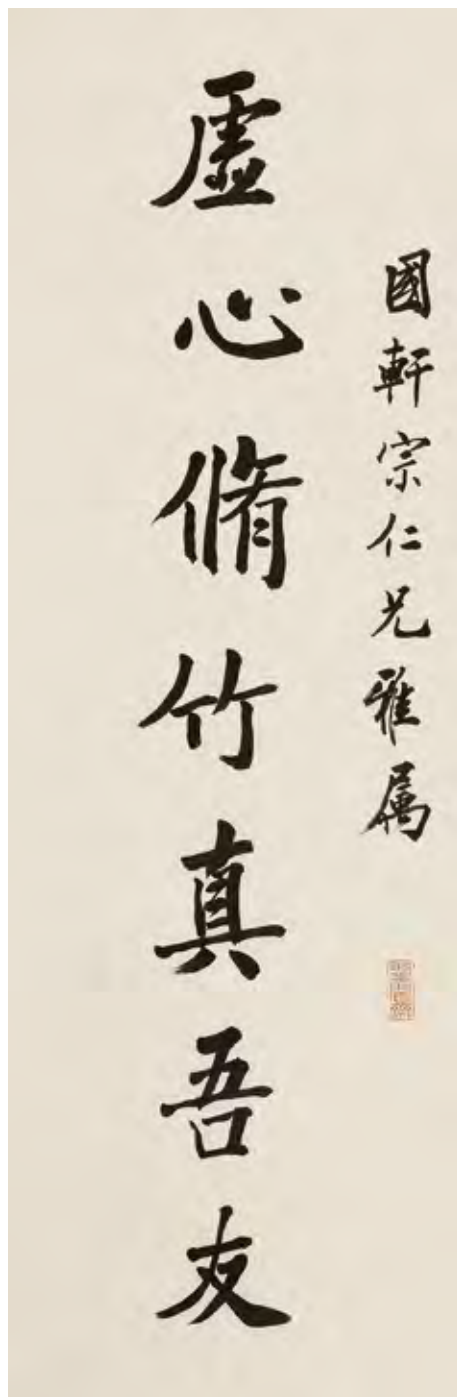 國軒宗仁兄雅属
虛心脩竹真吾友